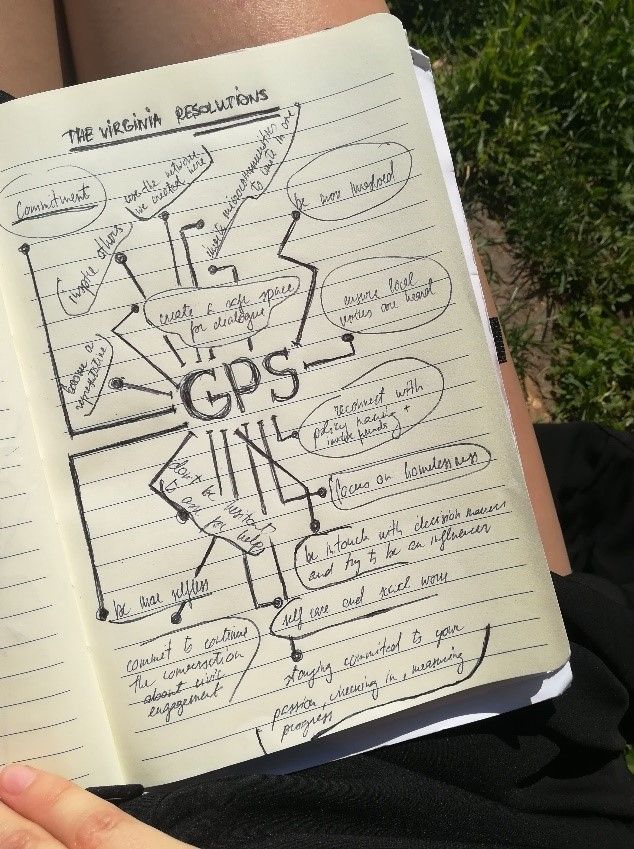 THE VIRGINIA RESOLUTIONS
Commitment
use the network
we created here
create microcommunities
to unite in one
be more involved
inspire others
create a safe space
for dialogue
ensure local
voices are heard
become a
representative
GPS
reconnect with
policy making +
invite friends
focus on homelessness
don't be hesitant
to ask for help
be in touch with decision makers
and try to be an influencer
be more selfless
self care and social work
commit to continue
the conversation
about civic
engagement
staying committed to your
passion, checking in, measuring
progress